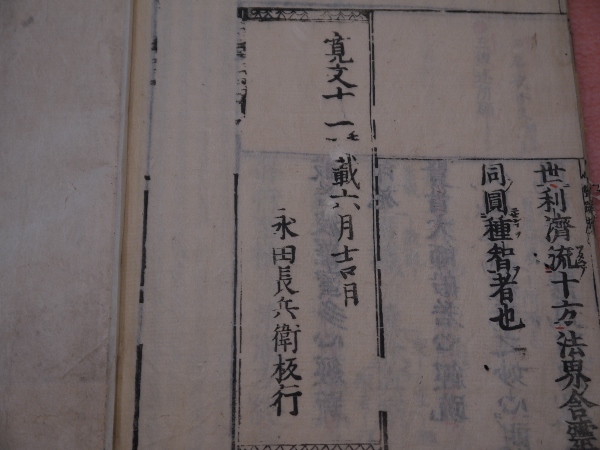 世利濟流十方法界含靈
同圓種智者也
寛文十一載六月吉日
永田長兵衛板行